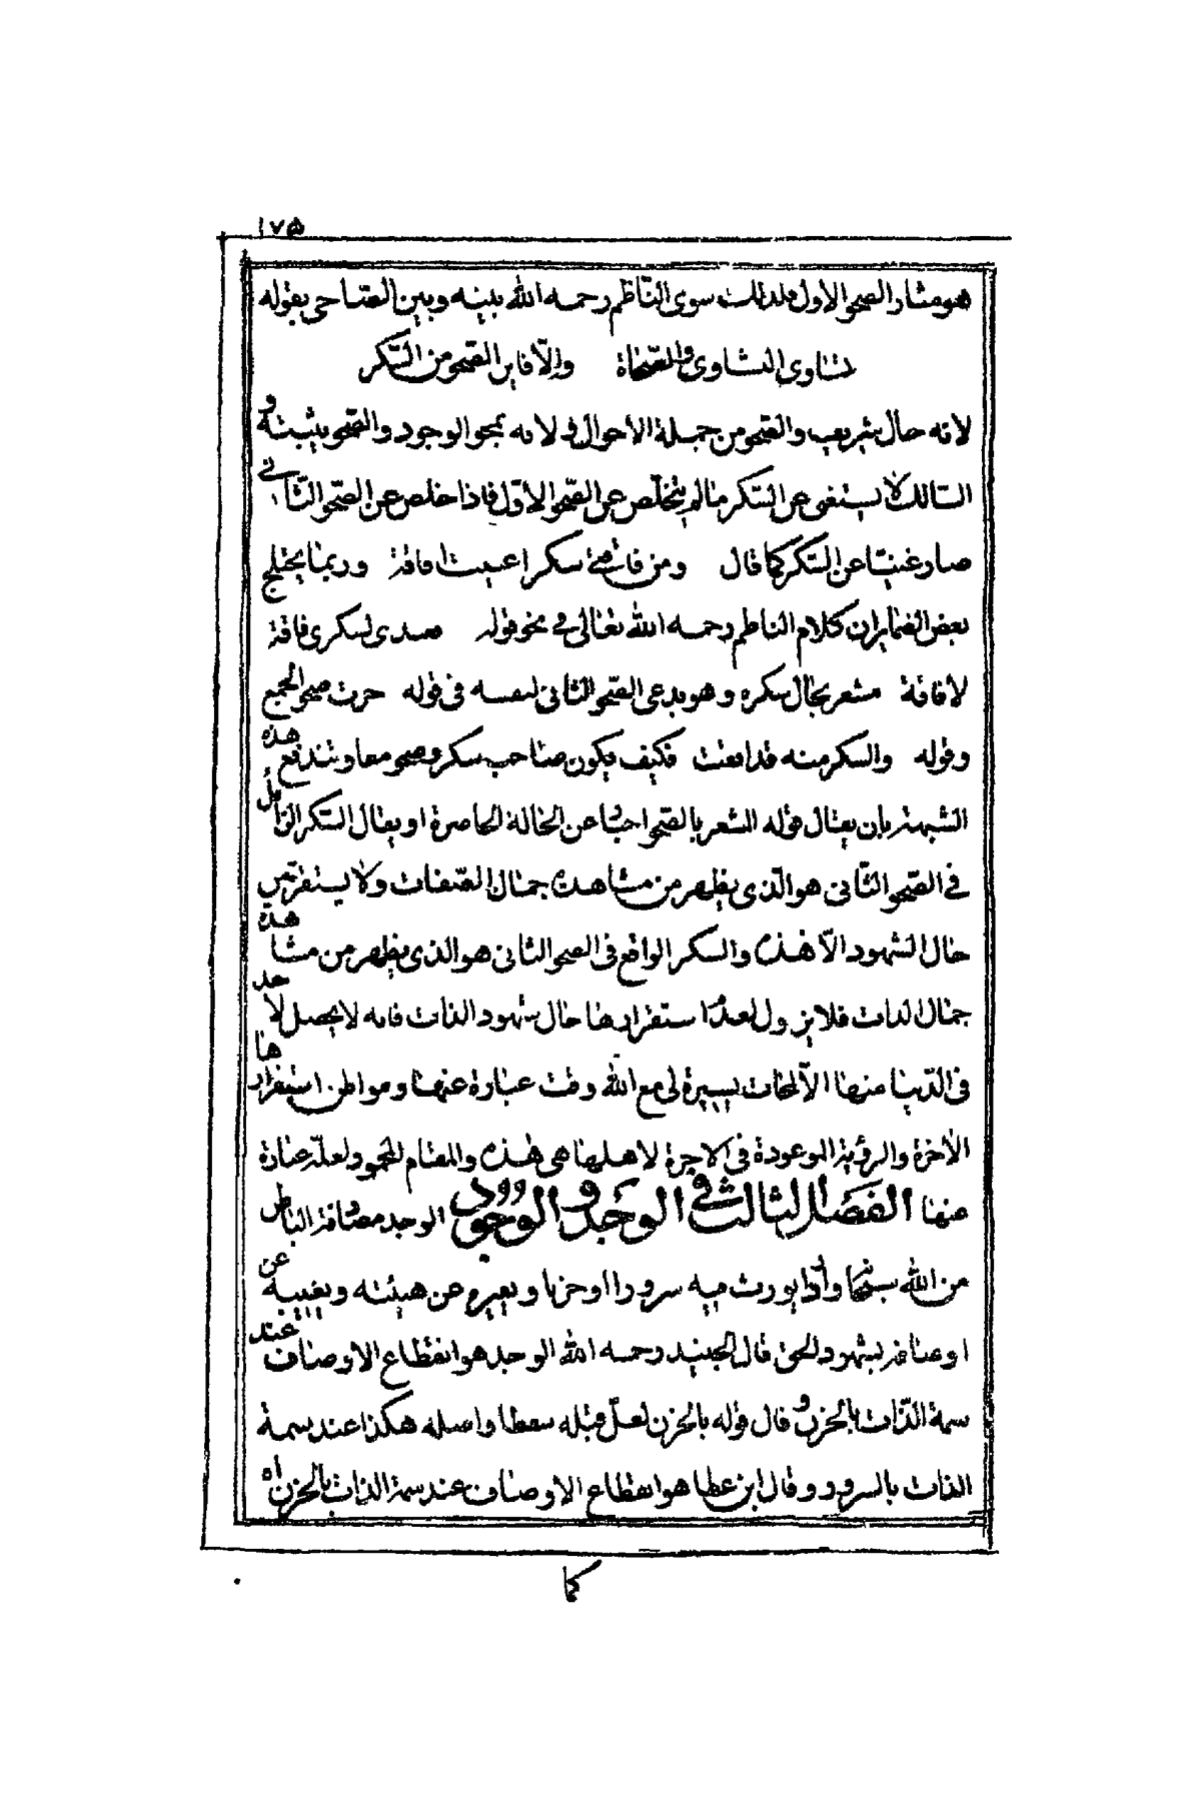 ١٧۵
هو مثار الصحو الاول فلذلك سوى الناظم رحمه الله بينه وبين الصاحى بقوله
تساوى النشاوى والصحاة والّا فاين الصحو من السّكر
لانه حال شريف والصّحو من جملة الأحوال ولانه يمحو الوجود والصّحو يثبته و
السّالك لا يستغنى عن السّكر ما لم يتخلّص عن الصّحو الاوّل فاذا خلص عن الصّحو الثّانى
صار غنيّا عن السّكر كما قال ومن فاقتى سكرا غنيت افاقة وربما يختلج
بعض الضماير ان كلام الناظم رحمه الله تعالى فى نحو قوله لسكرى فاقة
لافاقة مشعر بحال سكره وهو يدعى الصّحو الثانى لنفسه فى قوله حزت صحو الجمع
وقوله والسكر منه قد افقت فكيف يكون صاحب سكر وصحو معا وتندفع هذه
الشبهة بان يقال قوله المشعر بالصّحو اخبار عن الحالة الحاصرة او يقال السّكر الزايل
فى الصّحو الثّانى هو الّذى يظهر من مشاهدة جمال الصّفات ولا يستقر من
حال الشهود الّا هذه والسكر الواقع فى الصحو الثانى هو الذى يظهر من مشاهدة
جمال الذات فلا يزول لعدم استقرارها حال شهود الذات فانه لا يحصل لاحد
فى الدّنيا منها الّا لمحات يسيرة لى مع الله وقت عبارة عنها ومواطن استقرارها
الآخرة والرؤية الموعودة فى الآخرة لاهلها هى هذه والمقام المحمود لعلّه عبارة
عنها الفصل الثالث فى الوجد والوجود الوجد مصادفة الباطن
من الله سبحانه واردا يورث فيه سرورا او حزنا ويغيره عن هيئته ويغيبه عن
اوصافه بشهود الحق قال الجنيد رحمه الله الوجد هو انقطاع الاوصاف عند
سمة الذّات بالحزن و قال قوله بالحزن لعلّ قبله سقطا واصله هكذا عند سمة
الذات بالسرور وقال ابن عطا هو انقطاع الاوصاف عند سمة الذات بالحزن اه
كما